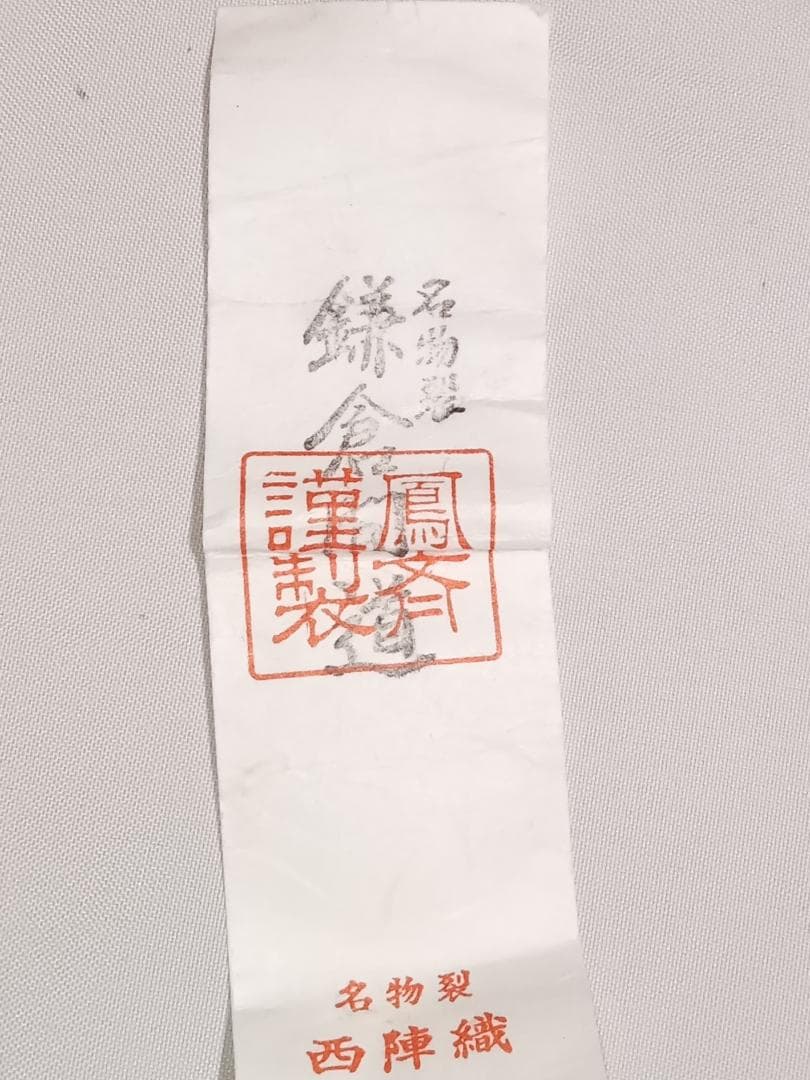 名物裂
鎌倉間道
鳳斉
謹製
名物裂
西陣織